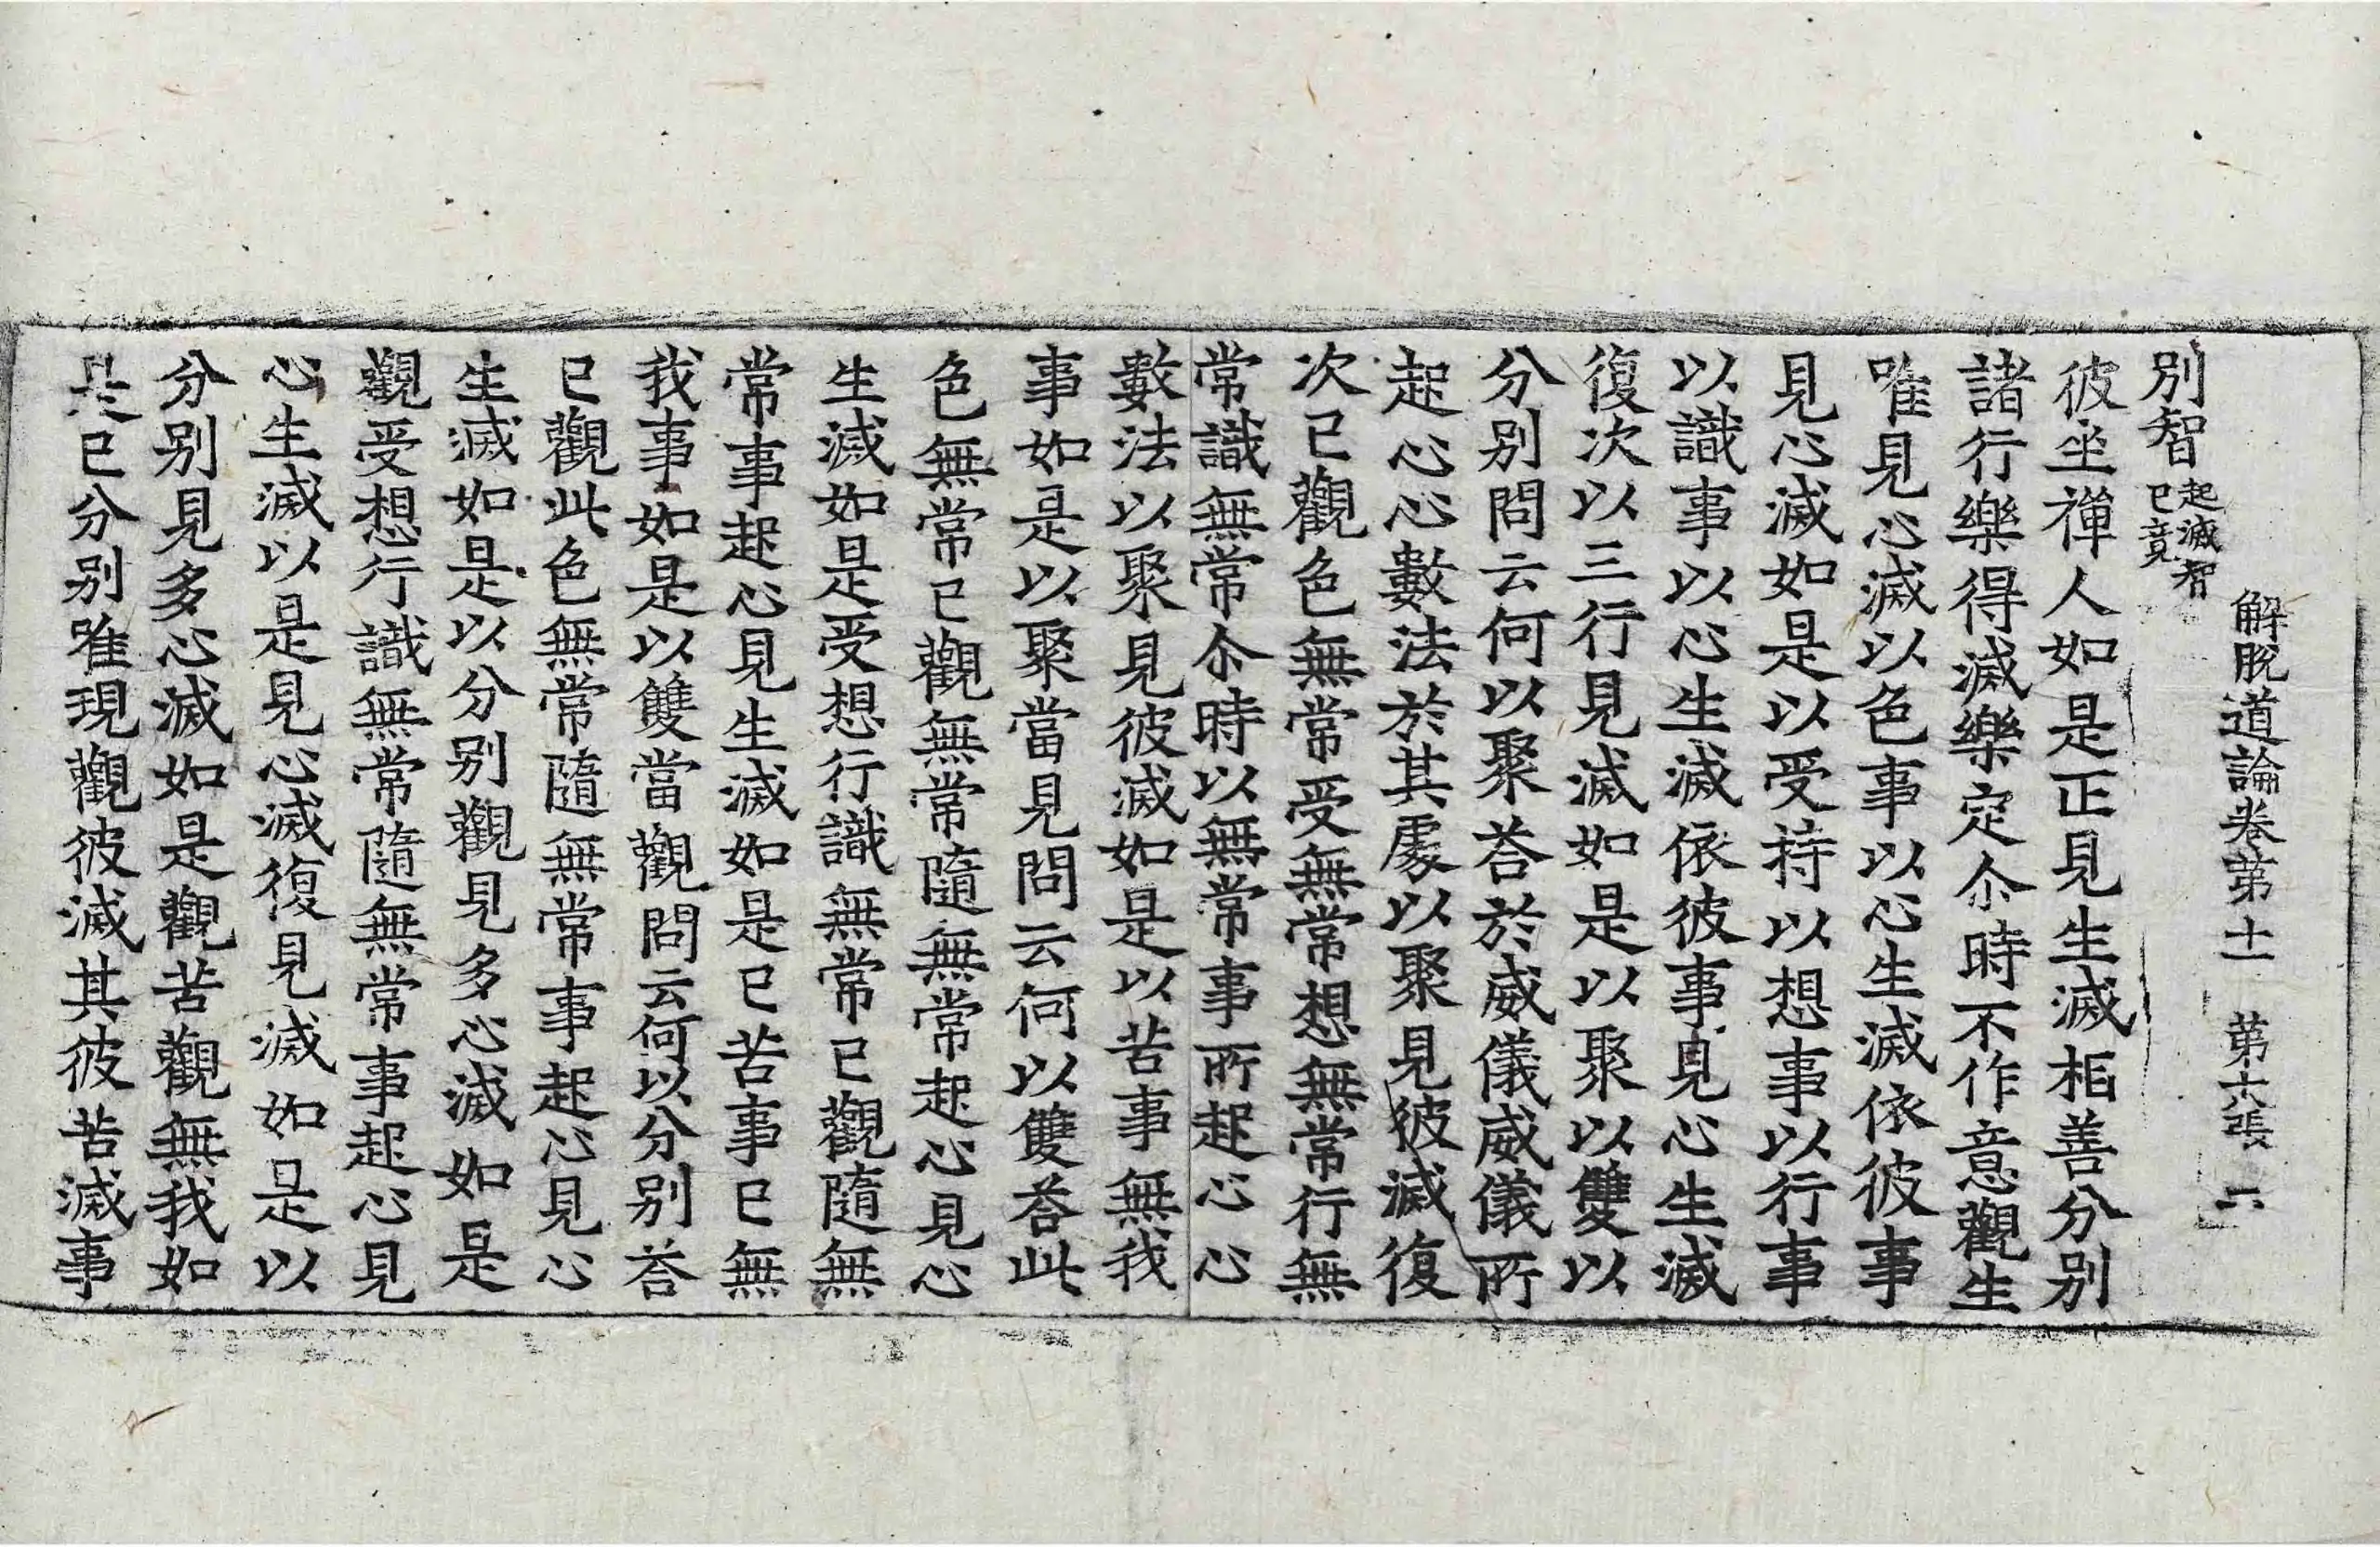 解脫道論卷第十一 第六張 六
別智起滅智已竟
彼坐禪人如是正見生滅相善分別
諸行樂得滅樂定尒時不作意觀生
唯見心滅以色事以心生滅依彼事
見心滅如是以受持以想事以行事
以識事以心生滅依彼事見心生滅
復次以三行見滅如是以聚以雙以
分別問云何以聚荅於威儀威儀所
起心心數法於其處以聚見彼滅復
次已觀色無常受無常想無常行無
常識無常尒時以無常事所起心心
數法以聚見彼滅如是以苦事無我
事如是以聚當見問云何以雙荅此
色無常已觀無常隨無常起心見心
生滅如是受想行識無常已觀隨無
常事起心見生滅如是已苦事已無
我事如是以雙當觀問云何以分別荅
已觀此色無常隨無常事起心見心
生滅如是以分別觀見多心滅如是
觀受想行識無常隨無常事起心見
心生滅以是見心滅復見滅如是以
分別見多心滅如是觀苦觀無我如
是已分別唯現觀彼滅其彼苦滅事